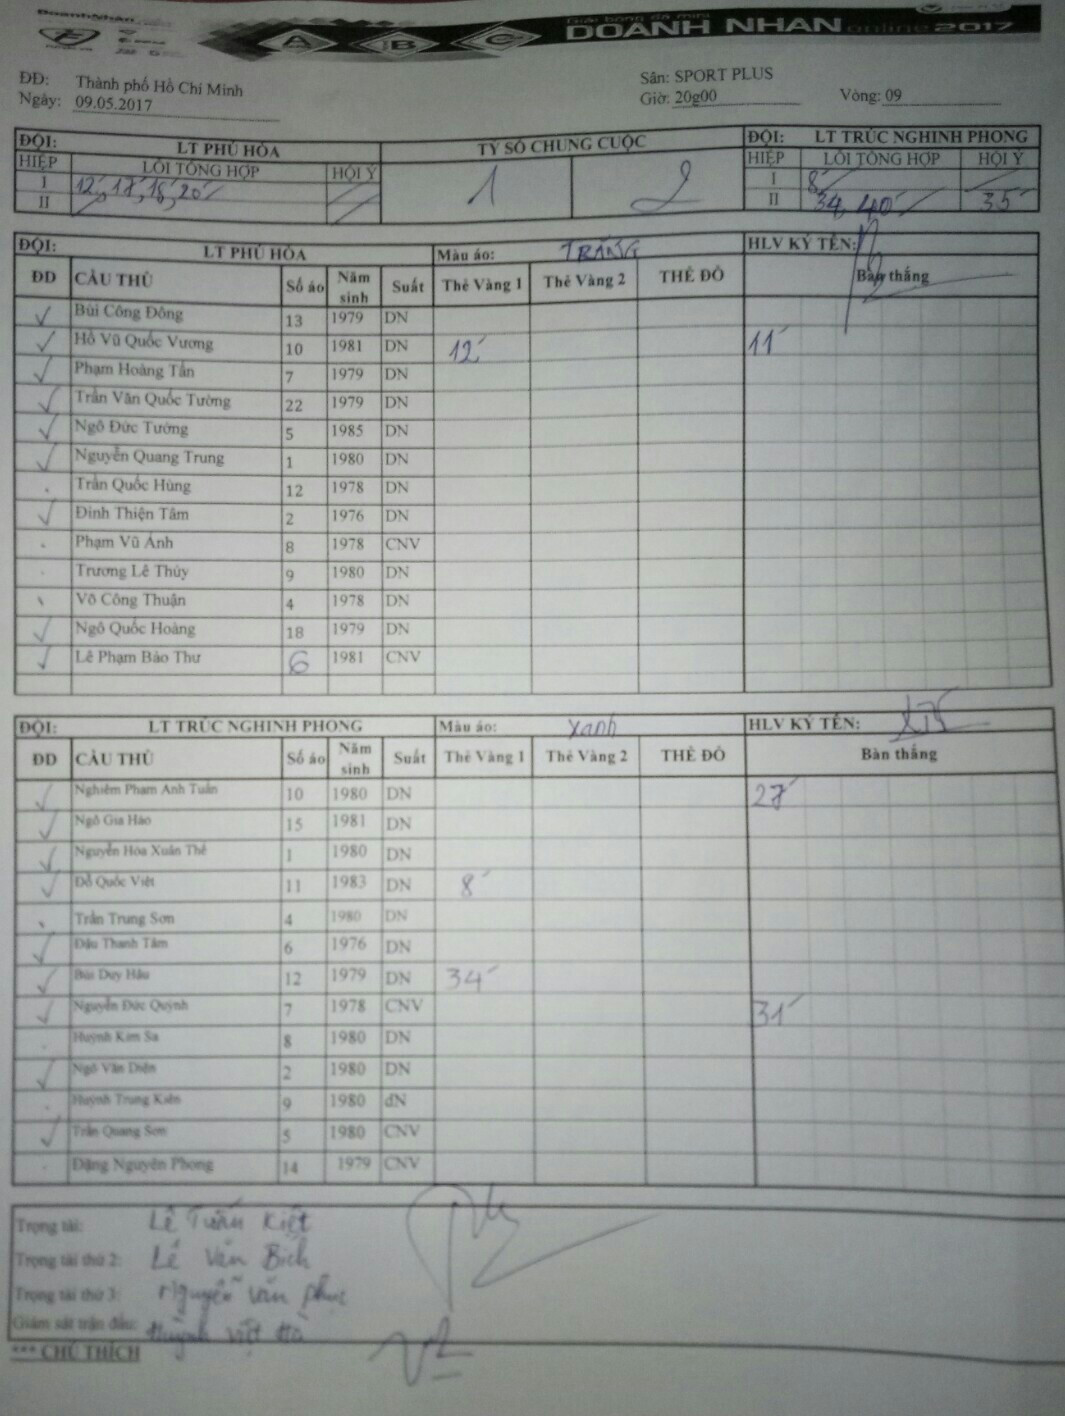 DoanhNhân
A B C
Giải bóng đá mini
DOANH NHAN online 2017
ĐĐ: Thành phố Hồ Chí Minh
Sân: SPORT PLUS
Ngày: 09.05.2017
Giờ: 20g00
Vòng: 09
ĐỘI: LT PHÚ HÒA
TỶ SỐ CHUNG CUỘC
ĐỘI: LT TRÚC NGHINH PHONG
HIỆP LỖI TỔNG HỢP HỘI Ý
1 2
HIỆP LỖI TỔNG HỢP HỘI Ý
I 12', 17', 18', 20'
I 8'
II
II 34', 40' 35'
ĐỘI: LT PHÚ HÒA Màu áo: TRẮNG HLV KÝ TÊN:
ĐD CẦU THỦ Số áo Năm sinh Suất Thẻ Vàng 1 Thẻ Vàng 2 THẺ ĐỎ Bàn thắng
Bùi Công Đông 13 1979 DN
Hồ Vũ Quốc Vương 10 1981 DN 12' 11'
Phạm Hoàng Tấn 7 1979 DN
Trần Văn Quốc Tường 22 1979 DN
Ngô Đức Tướng 5 1985 DN
Nguyễn Quang Trung 1 1980 DN
Trần Quốc Hùng 12 1978 DN
Đinh Thiện Tâm 2 1976 DN
Phạm Vũ Ánh 8 1978 CNV
Trương Lê Thùy 9 1980 DN
Võ Công Thuận 4 1978 DN
Ngô Quốc Hoàng 18 1979 DN
Lê Phạm Bảo Thư 6 1981 CNV
ĐỘI: LT TRÚC NGHINH PHONG Màu áo: Xanh HLV KÝ TÊN:
ĐD CẦU THỦ Số áo Năm sinh Suất Thẻ Vàng 1 Thẻ Vàng 2 THẺ ĐỎ Bàn thắng
Nghiêm Phạm Anh Tuấn 10 1980 DN 27'
Ngô Gia Hào 15 1981 DN
Nguyễn Hòa Xuân Thế 1 1980 DN
Đỗ Quốc Việt 11 1983 DN 8'
Trần Trung Sơn 4 1980 DN
Đậu Thanh Tâm 6 1976 DN
Bùi Duy Hậu 12 1979 DN 34'
Nguyễn Đức Quỳnh 7 1978 CNV 31'
Huỳnh Kim Sa 8 1980 DN
Ngô Văn Diện 2 1980 DN
Huỳnh Trung Kiên 9 1980 dN
Trần Quang Sơn 5 1980 CNV
Đặng Nguyên Phong 14 1979 CNV
Trọng tài: Lê Tuấn Kiệt
Trọng tài thứ 2: Lê Văn Bích
Trọng tài thứ 3: Nguyễn văn phúc
Giám sát trận đấu: Huỳnh Việt Hà
*** CHÚ THÍCH